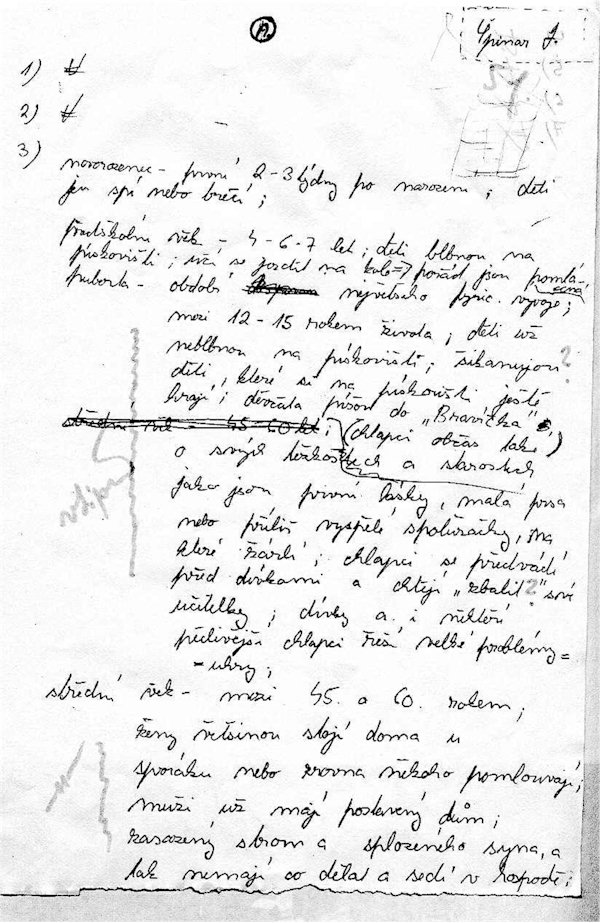 Špinar J.
1) #
2) #
3)
novorozenec - první 2-3 týdny po narození; děti
jen spí nebo brečí;
předškolní věk - 4-6-7 let; děti blbnou na
pískovišti; učí se jezdit na kole => pořád jsou pomlá-
cená
puberta - období největšího fyzic. vývoje;
mezi 12-15 rokem života; děti už
neblbnou na pískovišti; šikanujou ?
děti, které si na pískovišti ještě
hrají; děvčata píšou do "Bravíčka",
střední věk - 45-60 let; (chlapci občas také)
o svých těžkostech a starostech
jako jsou první lásky, malá prsa
nebo příliš vyspělé spolužačky, na
které žárlí; chlapci se předvádí
před dívkami a chtějí "zbalit" ? své
učitelky; dívky a i někteří
pečlivější chlapci řeší velké problémy =
= uhry;
vtipné
střední věk - mezi 45. a 60. rokem;
ženy většinou stojí doma u
sporáku nebo zrovna někoho pomlouvají;
muži už mají postavený dům;
zasazený strom a splozeného syna, a
tak nemají co dělat a sedí v hospodě;